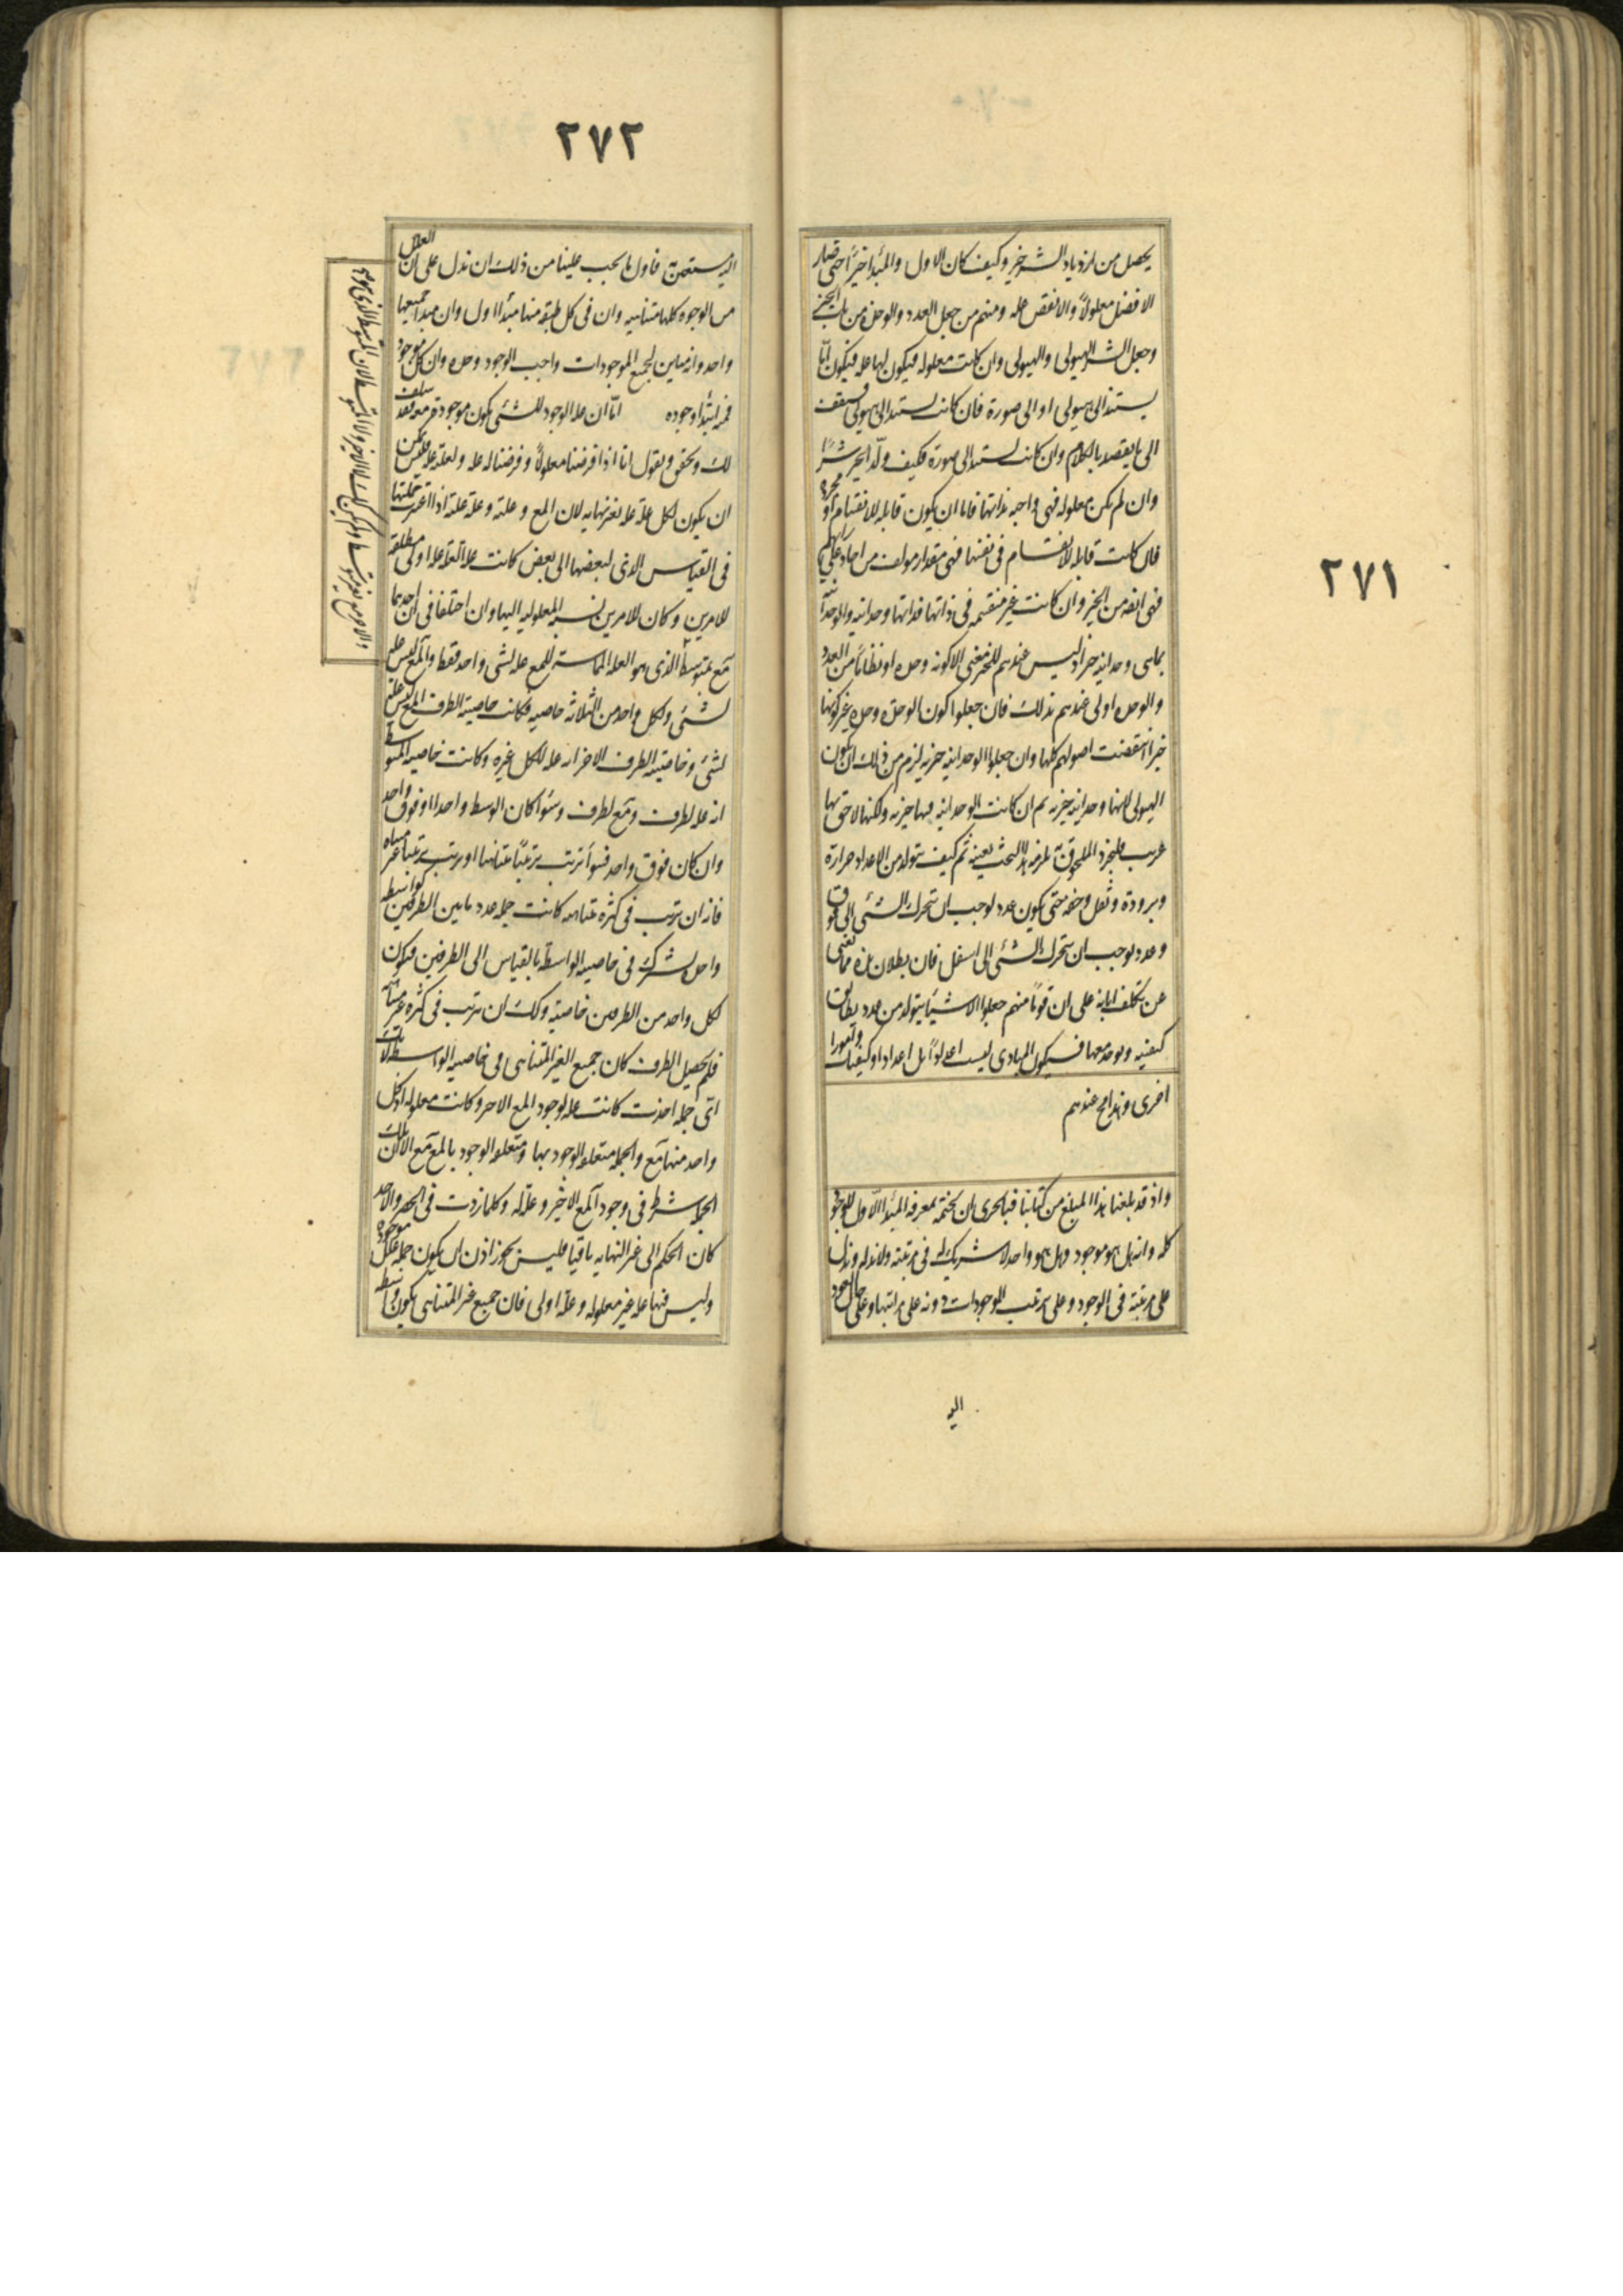 ٢٧١
يحصل من ازدياد الشر خير وكيف كان الاول والمبدأ خيرًا حتى صار
الافضل معلولاً والانقص علة ومنهم من جعل العدد والوحدة من باب الخير
وجعل الشر الهيولى والهيولى وان كانت معلولة فيكون لها علة فيكون امّا
يستند الى هيولى او الى صورة فان كانت تستند الى هيولى فسقف
الى ما يقصد بالكلام وان كانت تستند الى صورة فكيف ولّد الخير شرًا
وان لم يكن معلولة فهى واجبة بذاتها فاما ان يكون قابلة للانقسام او مجردة
فان كانت قابلة للانقسام فى نفسها فهى مقدار مولف من احاد على رايهم
فهى ايضه من الخير وان كانت غير منقسمه فى ذاتها فذاتها وحدانيه والوحدانية
بماهى وحدانيه خير اذ ليس عندهم للخير معنى الا كونه وحده او نظاما من العدد
والوحده اولى عندهم بذلك فان جعلوا كون الوحدة وحده غير كونها
خيرا انتقضت اصولهم كلها وان جعلوا الوحدانيه خيريه لزم من ذلك ان يكون
الهيولى لانها وحدانيه خيريه ثم ان كانت الوحدانيه فيها خيريه ولكنها لاحق بها
غريب فلنجرد الملحوقة يلزمه هذا البحث بعينه ثم كيف يتولد من الاعداد حرارة
وبرودة وثقل وخفه حتى يكون عدد يوجب ان يتحرك الشئ الى فوق
وعدد يوجب ان يتحرك الشئ الى اسفل فان بطلان هذه مما يغنى
عن تكلف ابانه على ان قومًا منهم جعلوا الاشياء يتولد من عدد يطابق
كيفيه ويوجد معها فيكون المبادى ليست اعدادًا بل اعدادا وكيفيات وامورا
اخرى وهذا مح عندهم
واذ قد بلغنا هذا المبلغ من كتابنا فبالحرى ان نختمه بمعرفة المبدأ الاول للوجود
كله وانه هل هو موجود وهل هو واحد لا شريك له فى مرتبته ولا ند له وندل
على مرتبته فى الوجود وعلى ترتيب الموجودات دونه على مراتبها وعلى حال العود
اليه
٢٧٢
اليه مستعينين به فاول ما يجب علينا من ذلك ان ندل على ان العلل
من الوجوه كلها متناهيه وان فى كل طبقه منها مبدأ اول وان مبدأ جميعها
واحد وانه مباين لجميع الموجودات واجب الوجود وحده وان كل موجود
فمنه ابتدأ وجوده امّا ان علة الوجود للشئ يكون موجودة معه فقد سلف
لك وتحقق ونقول انا اذا فرضنا معلولاً وفرضنا له علة ولعلته علة فليس يمكن
ان يكون لكل علة علة بغير نهايه لان المع وعلته وعلة علته اذا اعتبرت جملتها
فى القياس الذى لبعضها الى بعض كانت علة العلة علة اولى مطلقه
للامرين وكان للامرين نسبه المعلوليه اليها وان اختلفا فى ان احدهما
مع بمتوسط الذى هو العلة المماسه للمع علة لشئ واحد فقط والمع ليس علة
لشئ ولكل واحد من الثلاثه خاصيه فكانت خاصيه الطرف المع انه ليس علة
لشئ وخاصيه الطرف الاخر انه علة للكل غيره وكانت خاصيه المتوسط
انه علة لطرف ومع لطرف وسوا كان الوسط واحدا او فوق واحد
وان كان فوق واحد فسوأ ترتب ترتبًا متناهيا او ترتب ترتبا غير متناه
فانه ان ترتب فى كثره متناهيه كانت جمله عدد ما بين الطرفين كواسطه
واحده يشترك فى خاصيه الواسطه بالقياس الى الطرفين فيكون
لكل واحد من الطرفين خاصيه وكك ان ترتب فى كثره غير متناهيه
فلم يحصل الطرف كان جميع الغير المتناهى فى خاصيه الواسطه لانك
اى جملة اخذت كانت علة لوجود المع الاخر وكانت معلوله اذ كل
واحد منها مع والجمله متعلق الوجود بها ومتعلق الوجود بالمع مع الا ان تلك
الجمله شرط فى وجود المع الاخير وعلة له وكلما زدت فى الحصر والاخذ
كان الحكم الى غير النهايه باقيا فليس يجوز اذن ان يكون جملة علل موجوده
وليس فيها علة غير معلوله وعلة اولى فان جميع غير المتناهى يكون واسطه